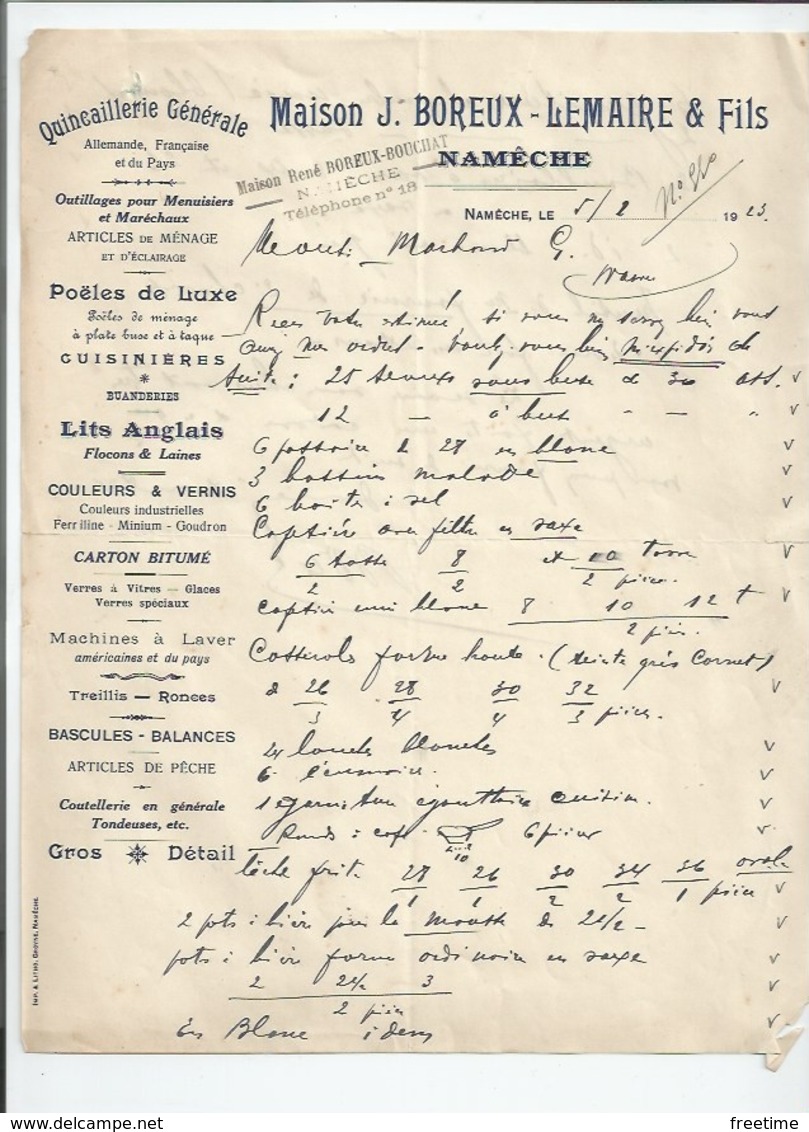 Quincaillerie Générale
Allemande, Française
et du Pays
Outillages pour Menuisiers
et Maréchaux
ARTICLES DE MÉNAGE
ET D'ÉCLAIRAGE
Poëles de Luxe
Poëles de ménage
à plate buse et à taque
CUISINIÈRES
BUANDERIES
Lits Anglais
Flocons & Laines
COULEURS & VERNIS
Couleurs industrielles
Ferriline - Minium - Goudron
CARTON BITUMÉ
Verres à Vitres - Glaces
Verres spéciaux
Machines à Laver
américaines et du pays
Treillis - Ronces
BASCULES - BALANCES
ARTICLES DE PÊCHE
Coutellerie en générale
Tondeuses, etc.
Gros Détail
IMP. & LITHO. GROYNE, NAMÊCHE.
Maison J. BOREUX - LEMAIRE & Fils
NAMÊCHE
Maison René BOREUX-BOUCHAT
NAMÊCHE
Téléphone n° 18
NAMÊCHE, LE 5/2 1923.
G.
suite : 25 sous buse de 30
12 — à buse — —
6 passoire de 28 en blanc
3 bassins malade
6 boite à sel
avec filtre en saxe
6 tasse 8 et 10 tasse
2 2 2 pièces.
blanc 8 10 12 t
2 pièc.
Casserole forme haute. (teinte gris Cornet)
de 26 28 30 32
3 4 4 3 pièces.
24 louches blanches
6 écumoire.
1 garniture égouttoire cuisine.
Ronds à café 6 pièces
10
lèche frite 28 26 30 34 36 ovale
1 1 2 2 1 pièce
2 pots à bière pour la mousse de 2½ —
pots à bière forme ordinaire en saxe
2 2½ 3
2 pièces
En Blanc idem
freetime